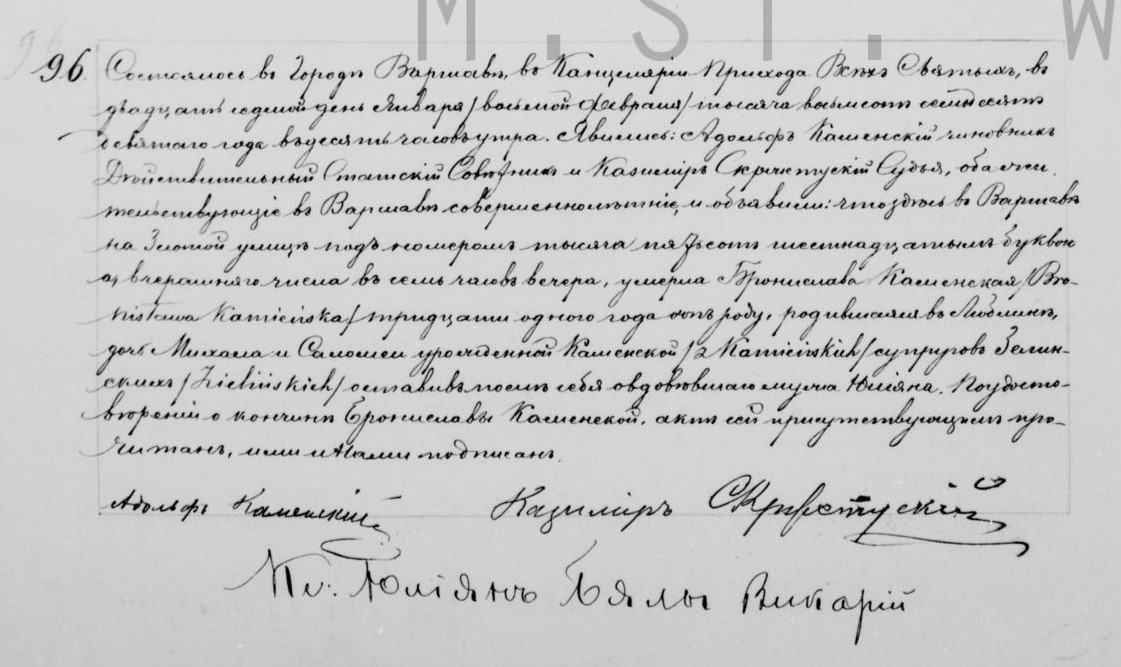 M . S I . W
96. Состоялось въ Городѣ Варшавѣ, въ Канцеляріи Прихода Всѣхъ Святыхъ, въ
двадцать седмой день Января /восьмой Февраля/ тысяча восьмсотъ семдесятъ
девятаго года въ десять часовъ утра. Явились: Адольфъ Каменскій чиновникъ
Дѣйствительный Статскій Совѣтникъ и Казиміръ Скржетускій Судья, оба жи-
тельствующіе въ Варшавѣ совершеннолѣтніе, и объявили: что здѣсь въ Варшавѣ
на Золотой улицѣ подъ номеромъ тысяча пятьсотъ шестнадцатымъ буквою
а, вчерашняго числа въ семь часовъ вечера, умерла Брониславa Каменская /Bro-
nisława Kamieńska/ тридцати одного года отъ роду, родившаяся въ Люблинѣ,
дочь Михала и Саломеи урожденной Каменской /z Kamieńskich/ супруговъ Зелин-
скихъ /Zielińskich/ оставивъ послѣ себя овдовѣвшаго мужа Юліяна. По удосто-
вѣреніи о кончинѣ Брониславы Каменской, актъ сей присутствующимъ про-
читанъ, ими и Нами подписанъ.
Адольфъ Каменскій Казиміръ Скржетускій
Кс. Юліянъ Бялы Викарій